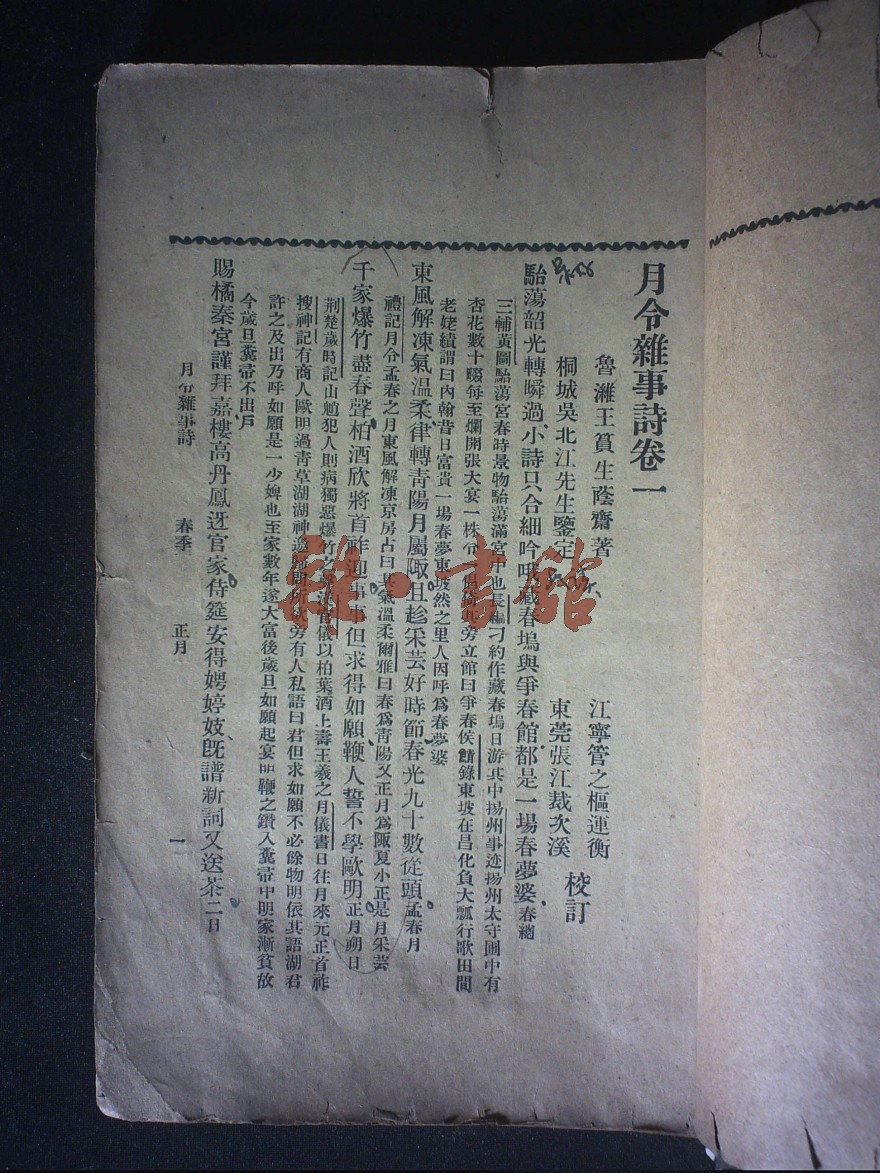 月令雜事詩卷一
魯濰王簣生蔭齋著
桐城吳北江先生鑒定
江寧管之樞連衡
東莞張江裁次溪
校訂
駘蕩韶光轉瞬過小詩只合細吟哦藏春塢與爭春館都是一場春夢婆春總
三輔黃圖駘蕩宮春時景物駘蕩滿宮中也長編刁約作藏春塢日游其中揚州事迹揚州太守圃中有
杏花數十畷每至爛開張大宴一株 旁立館曰爭春侯鯖錄東坡在昌化負大瓢行歌田間
老姥績謂曰內翰昔日富貴一場春夢東坡然之里人因呼爲春夢婆
東風解凍氣溫柔律轉青陽月屬陬且趁采芸好時節春光九十數從頭孟春月
禮記月令孟春之月東風解凍京房占曰其氣溫柔爾雅曰春爲青陽又正月爲陬夏小正是月采芸
千家爆竹盡春聲柏酒欣將首祚迎事事但求得如願鞭人誓不學歐明正月朔日
荊楚歲時記山魈犯人則病獨惡爆竹之聲漢官儀以柏葉酒上壽王羲之月儀書日往月來元正首祚
搜神記有商人歐明過青草湖湖神邀歸問所欲旁有人私語曰君但求如願不必餘物明依其語湖君
許之及出乃呼如願是一少婢也至家數年遂大富後歲旦如願起宴明鞭之鑽入糞帚中明家漸貧故
今歲旦糞帚不出戶
賜橘秦宮謹拜嘉樓高丹鳳迓官家侍筵安得娉婷妓旣譜新詞又送茶二日
月令雜事詩
春季
正月
一